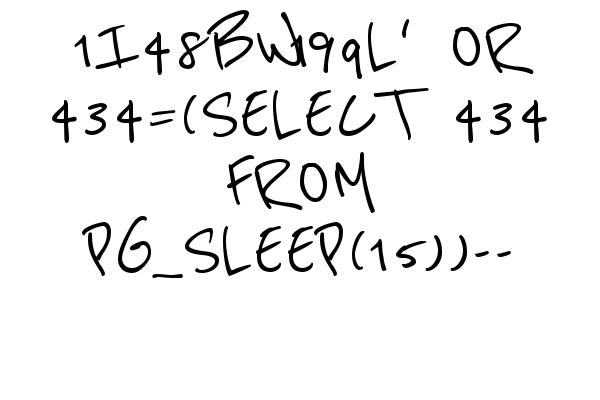 1I48BW199L' OR
434=(SELECT 434
FROM
PG_SLEEP(15))--